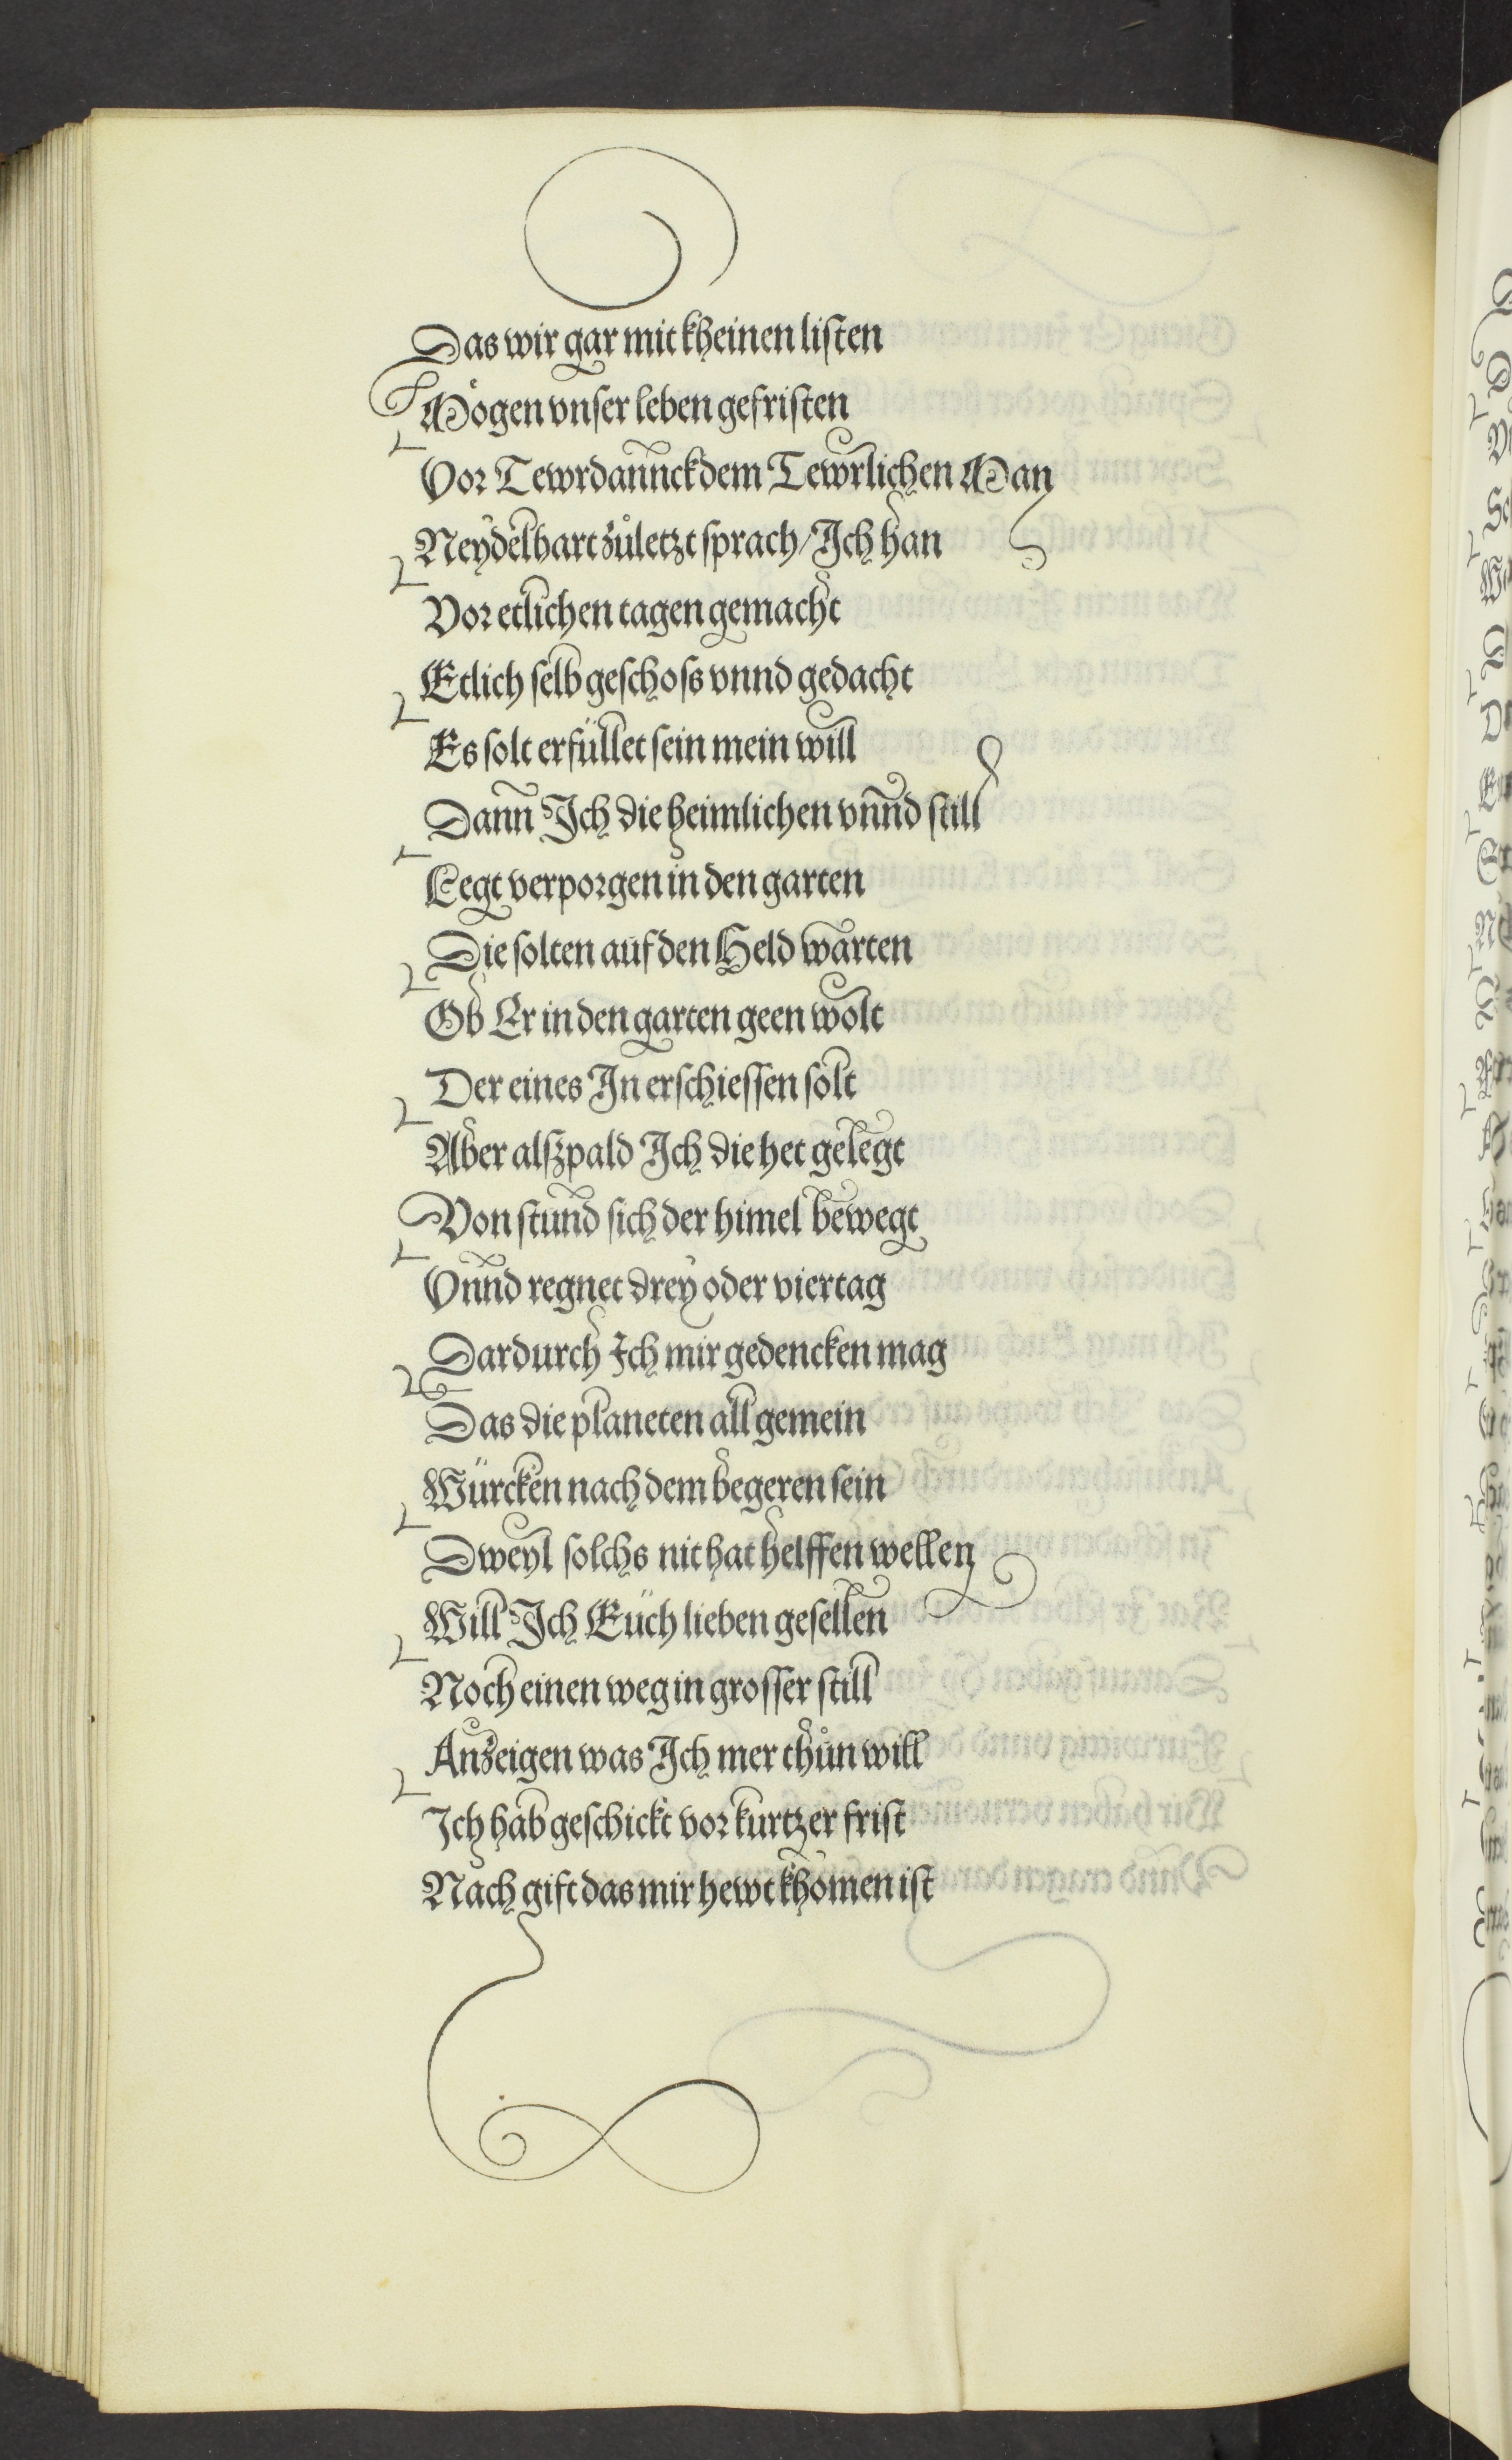 Das wir gar mit kheinen listen
Mögen vnser leben gefristen
Vor Tewrdannck dem Tewrlichen Man
Neydelhart zůletzt sprach/Ich han
Vor etlichen tagen gemacht
Etlich selbgeschoss vnnd gedacht
Es solt erfüllet sein mein will
Dann Ich die heimlichen vnnd still
Legt verporgen in den garten
Die solten auf den Held warten
Ob Er in den garten geen wolt
Der eines In erschiessen solt
Aber alszpald Ich die het gelegt
Von stund sich der himel bewegt
Vnnd regnet drey oder viertag
Dardurch Ich mir gedencken mag
Das die planeten all gemein
Würcken nach dem begeren sein
Dweyl solchs nit hat helffen wellen
Will Ich Euch lieben gesellen
Noch einen weg in grosser still
Anzeigen was Ich mer thůn will
Ich hab geschickt vor kurtzer frist
Nach gift das mir hewt khomen ist